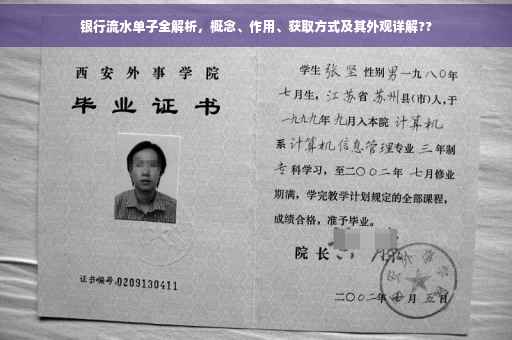 银行流水单子全解析，概念、作用、获取方式及其外观详解??
西安外事学院
毕业证书
证书编号:0209130411
学生 张坚 性别 男 一九八〇年
七月生，江苏省 苏州县(市)人，于
一九九九年 九月入本院 计算机
系 计算机信息管理专业 三 年制
专 科学习，至二〇〇二年 七月修业
期满，学完教学计划规定的全部课程，
成绩合格，准予毕业。
院 长
二〇〇二年 七 月 五 日